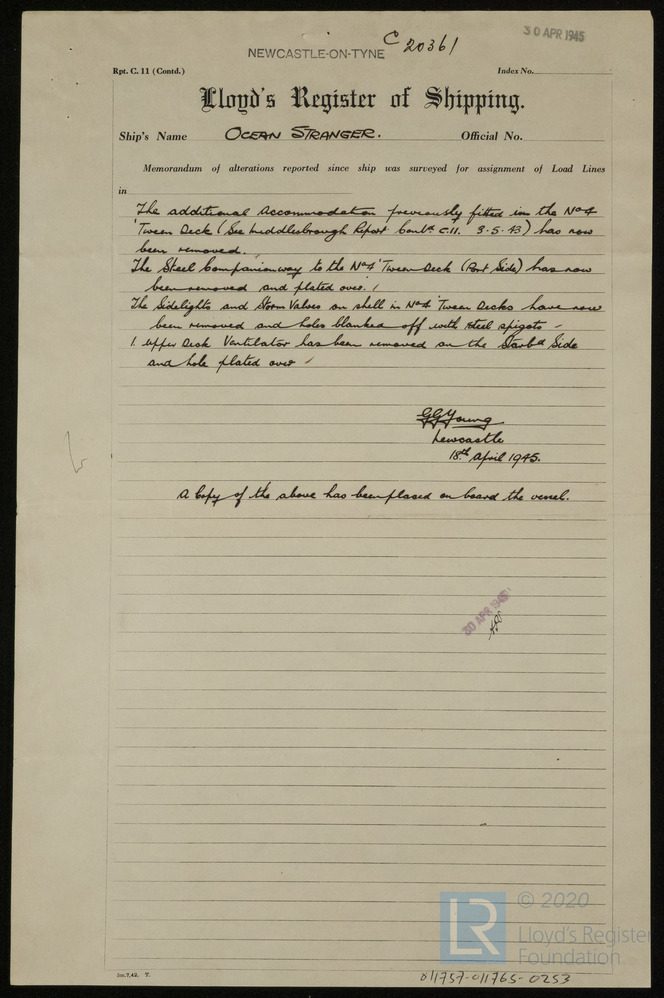 C 20361
30 APR 1945
NEWCASTLE-ON-TYNE
Rpt. C. 11 (Contd.)
Index No.
Lloyd's Register of Shipping.
Ship's Name OCEAN STRANGER. Official No.
Memorandum of alterations reported since ship was surveyed for assignment of Load Lines
in
The additional Accommodation previously fitted in the No4
'Tween Deck (See Middlesbrough Report Contd C.11. 3.5.43) has now
been removed.
The Steel Companionway to the No4 'Tween Deck (Port Side) has now
been removed and plated over.
The Sidelights and Storm Valves on shell in No4 'Tween Decks have now
been removed and holes blanked off with steel spigots -
1. Upper Deck Ventilator has been removed on the Starbd Side
and hole plated over
GGYoung
Newcastle
18th April 1945.
A Copy of the above has been placed on board the vessel.
30 APR 1945
© 2020
LR
Lloyd's Register
Foundation
5m.7.42. T.
011757-011765-0253